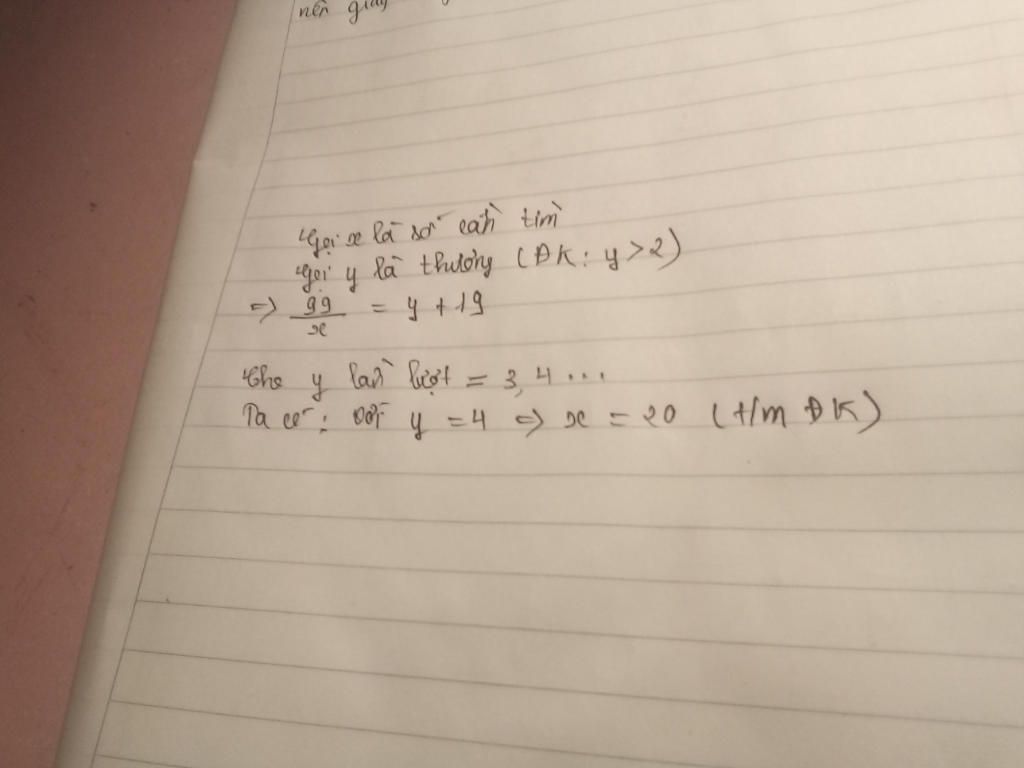 nên giấy
Gọi x là số cần tìm
Gọi y là thương (ĐK: y > 2)
=> 99/x = y + 19
Cho y lần lượt = 3, 4 ...
Ta có: với y = 4 => x = 20 (t/m ĐK)